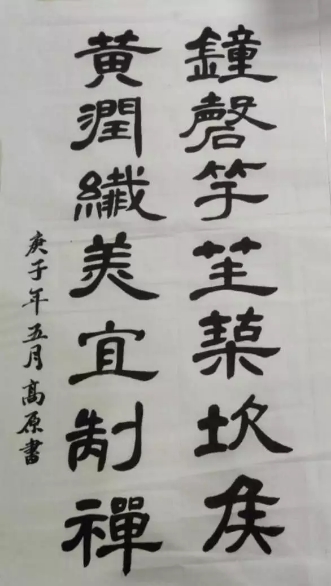 鐘磬竽笙築坎侯
黃潤纖美宜制禪
庚子年五月高原書